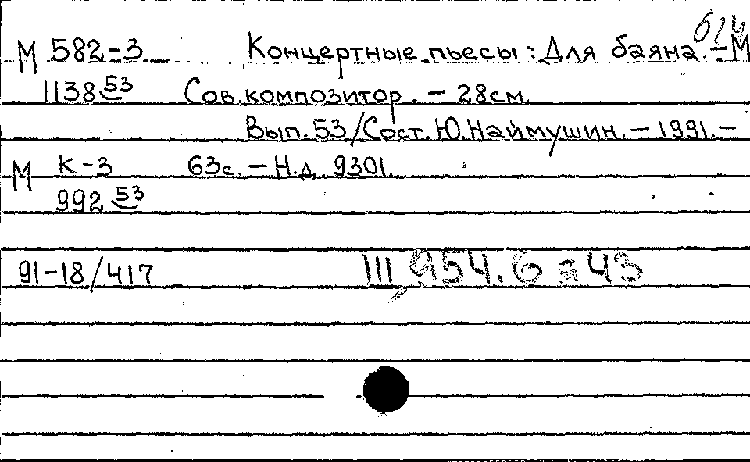 б/и
М 582-3 Концертные пьесы: Для баяна. - М
1138 53 Сов. композитор. - 28см.
Вып. 53/Сост. Ю. Наймушин. - 1991. -
М К-3 63с. - Н.д. 9301.
992 53
91-18/417 III 954.6 = 43